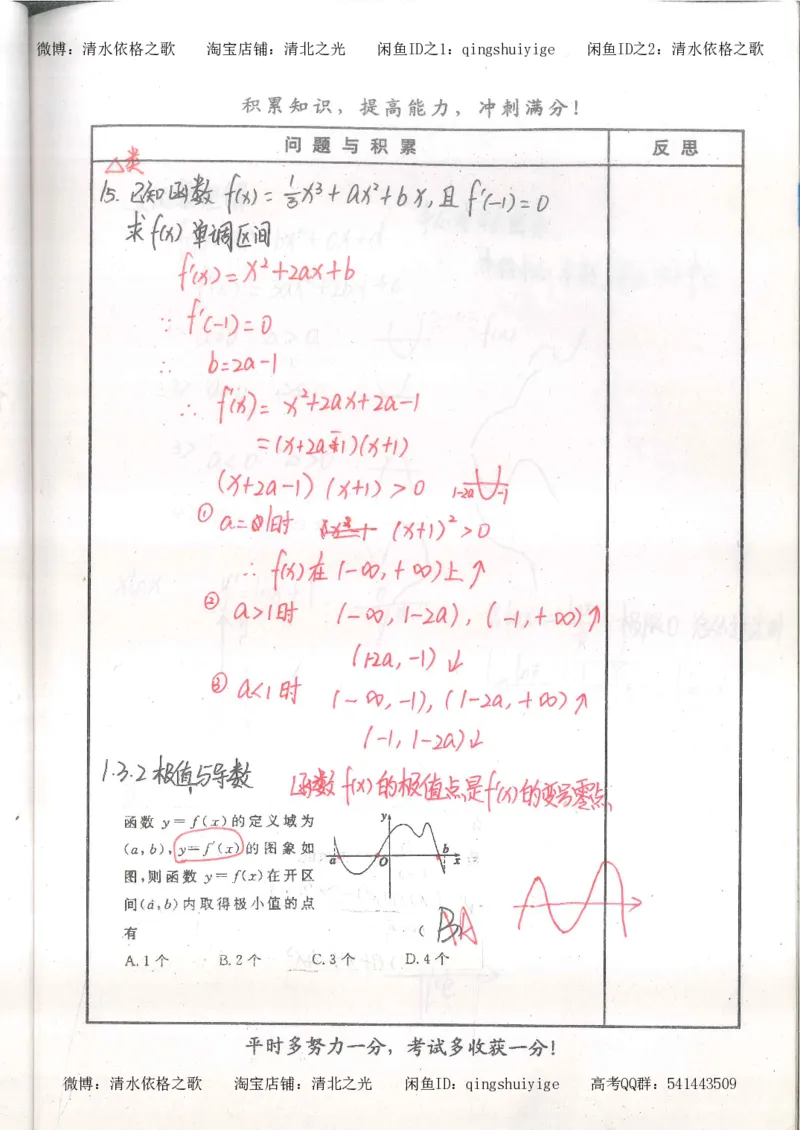 微博：清水依格之歌 淘宝店铺：清北之光 闲鱼ID之1：qingshuiyige 闲鱼ID之2：清水依格之歌
积累知识，提高能力，冲刺满分！
问题与积累 反思
△类
15. 已知函数 f(x) = 1/3 x³ + ax² + bx, 且 f'(-1) = 0
求 f(x) 单调区间
f'(x) = x² + 2ax + b
∵ f'(-1) = 0
∴ b = 2a-1
∴ f'(x) = x² + 2ax + 2a-1
= (x+2a-1)(x+1)
(x+2a-1)(x+1) > 0 1-2a -1
① a=1时 (x+1)² > 0
∴ f(x)在(-∞, +∞)上↑
② a>1时 (-∞, 1-2a), (-1, +∞)↑
(1-2a, -1)↓
③ a<1时 (-∞, -1), (1-2a, +∞)↑
(-1, 1-2a)↓
1.3.2 极值与导数 函数f(x)的极值点是f'(x)的变号零点
函数 y=f(x)的定义域为
(a,b), y=f'(x)的图象如
图,则函数 y=f(x)在开区
间(a,b)内取得极小值的点
有 ( B A )
y a O b x
A.1个 B.2个 C.3个 D.4个
平时多努力一分，考试多收获一分！
微博：清水依格之歌 淘宝店铺：清北之光 闲鱼ID：qingshuiyige 高考QQ群：541443509